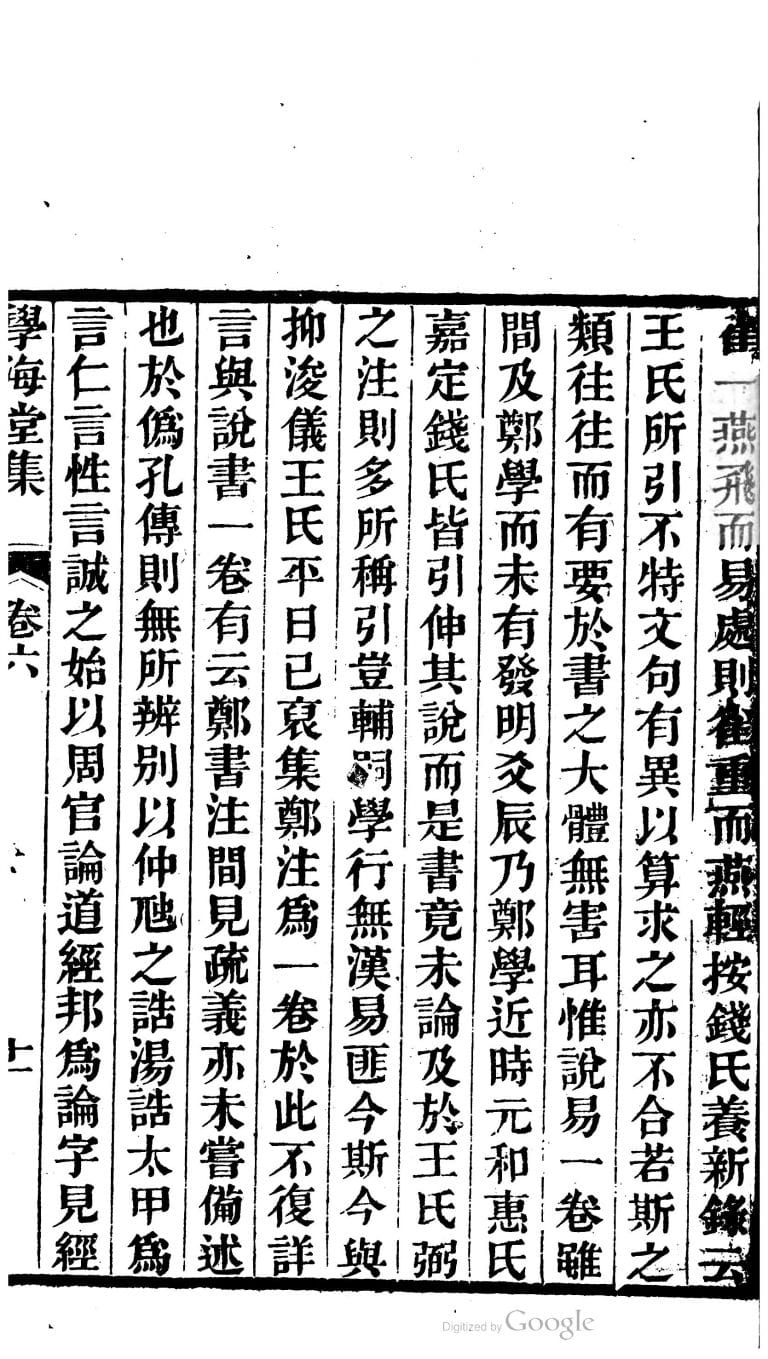 雀一燕飛而易處則雀重而燕輕按錢氏養新錄云
王氏所引不特文句有異以算求之亦不合若斯之
類往往而有要於書之大體無害耳惟說易一卷雖
間及鄭學而未有發明爻辰乃鄭學近時元和惠氏
嘉定錢氏皆引伸其說而是書竟未論及於王氏弼
之注則多所稱引豈輔嗣學行無漢易匪今斯今與
抑浚儀王氏平日已裒集鄭注為一卷於此不復詳
言與說書一卷有云鄭書注間見疏義亦未嘗備述
也於偽孔傳則無所辨別以仲虺之誥湯誥太甲為
言仁言性言誠之始以周官論道經邦為論字見經
學海堂集 卷六 十一
Digitized by Google